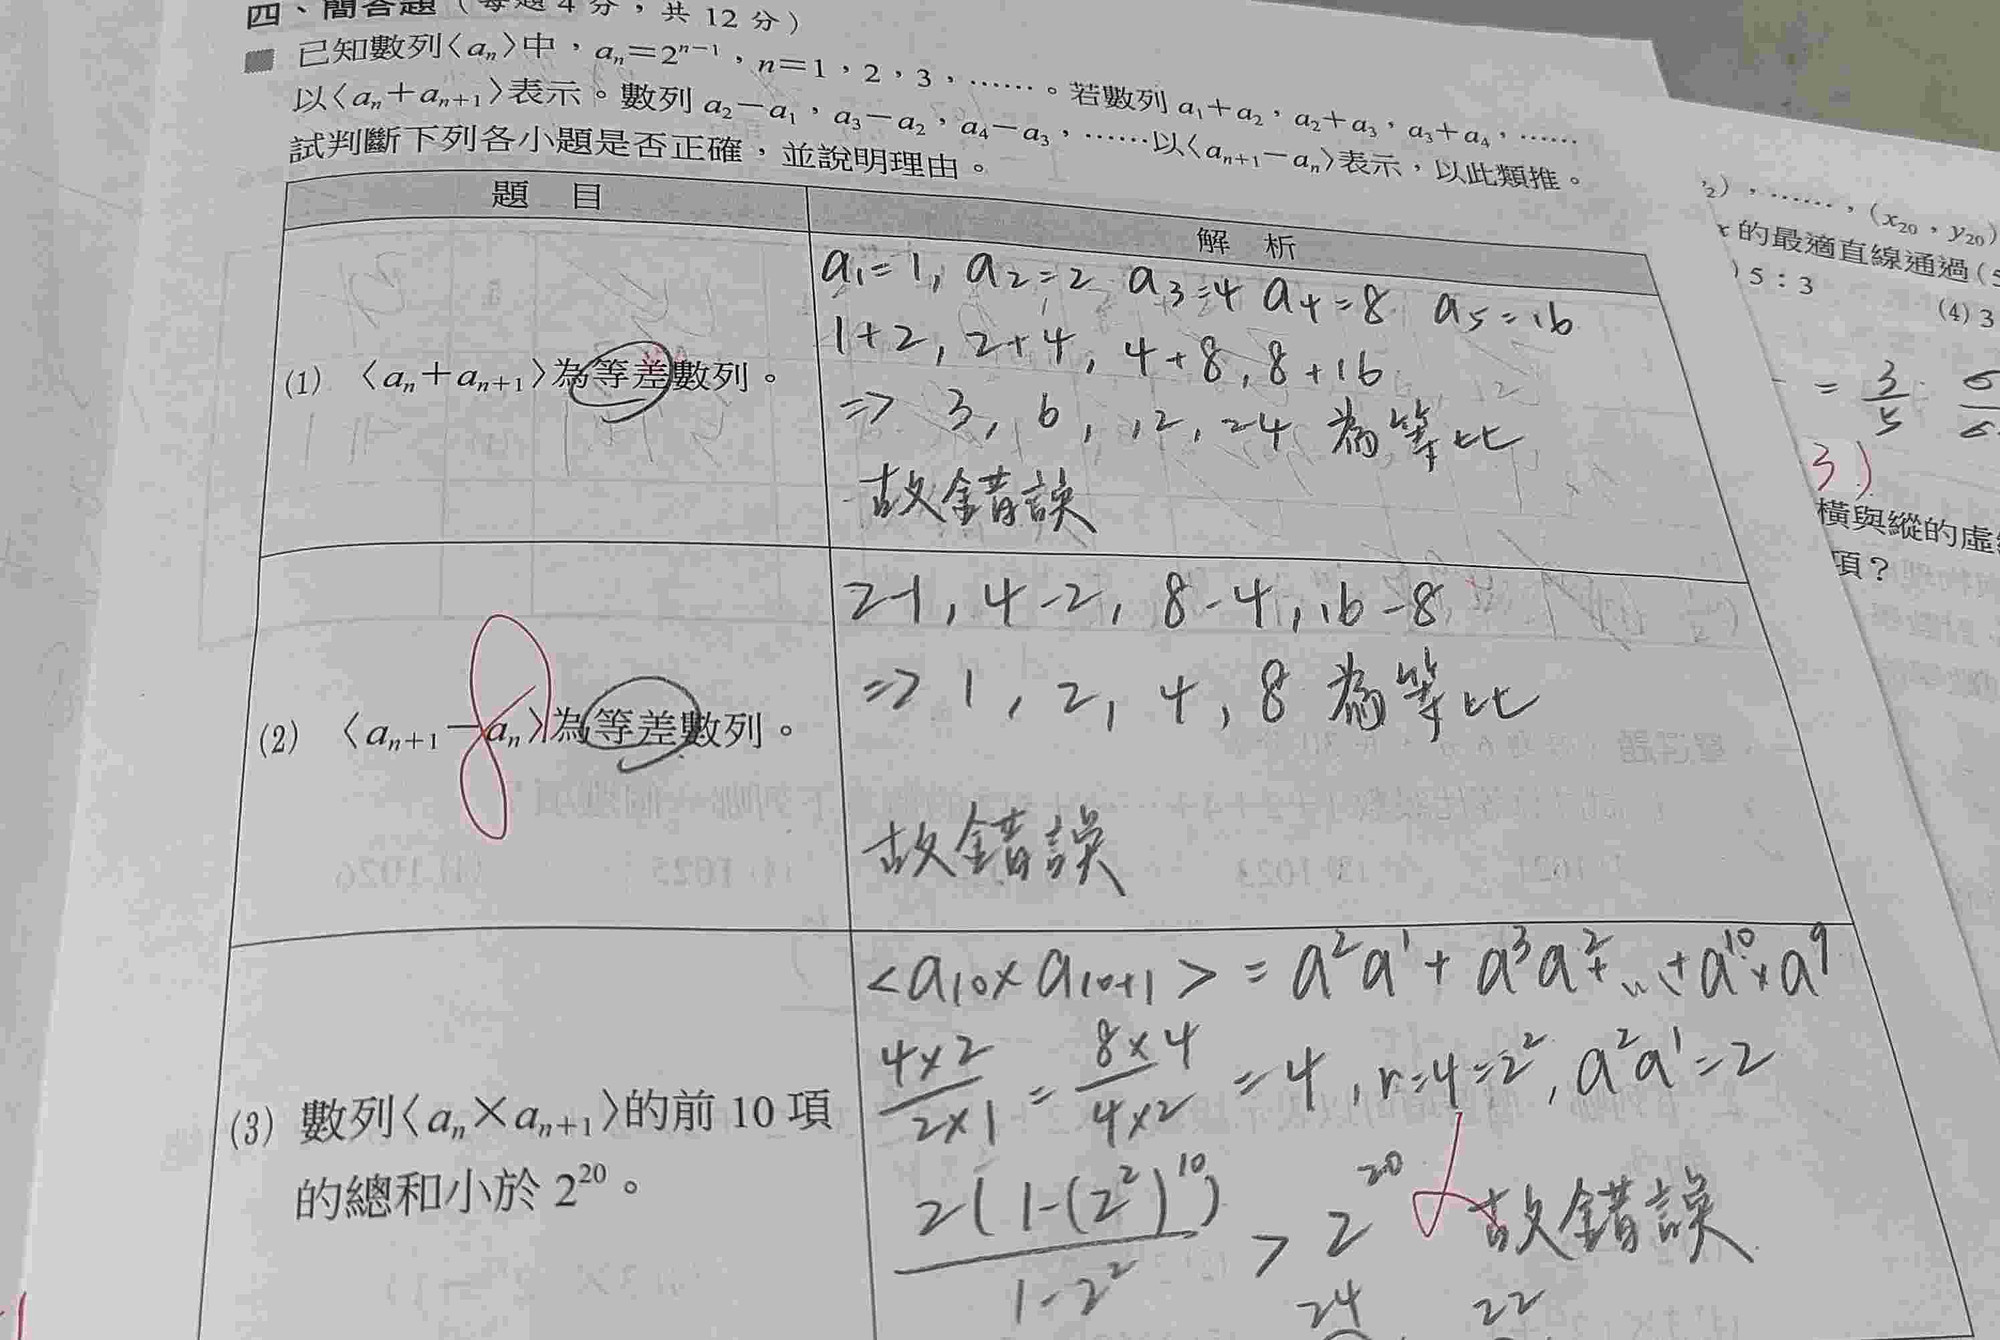 四、簡答題（每題4分，共12分）
已知數列〈aₙ〉中，aₙ=2ⁿ⁻¹，n=1，2，3，……。若數列 a₁+a₂，a₂+a₃，a₃+a₄，……
以〈aₙ+aₙ₊₁〉表示。數列 a₂-a₁，a₃-a₂，a₄-a₃，……以〈aₙ₊₁-aₙ〉表示，以此類推。
試判斷下列各小題是否正確，並說明理由。
題 目
解 析
(1) 〈aₙ+aₙ₊₁〉為等差數列。
a₁=1, a₂=2, a₃=4 a₄=8 a₅=16
1+2, 2+4, 4+8, 8+16
=> 3, 6, 12, 24 為等比
故錯誤
(2) 〈aₙ₊₁-aₙ〉為等差數列。
2-1, 4-2, 8-4, 16-8
=> 1, 2, 4, 8 為等比
故錯誤
8
(3) 數列〈aₙ×aₙ₊₁〉的前10項
的總和小於2²⁰。
<a₁₀×a₁₀₊₁> = a²a¹ + a³a² + … + a¹⁰×a⁹
4×2/2×1 = 8×4/4×2 = 4, r=4=2², a²a¹=2
2(1-(2²)¹⁰)/1-2² > 2²⁰ 故錯誤
24 22
₂)，……，(x₂₀，y₂₀)
x 的最適直線通過(5
) 5：3
(4) 3
= 3/5
3)
橫與縱的虛
項？